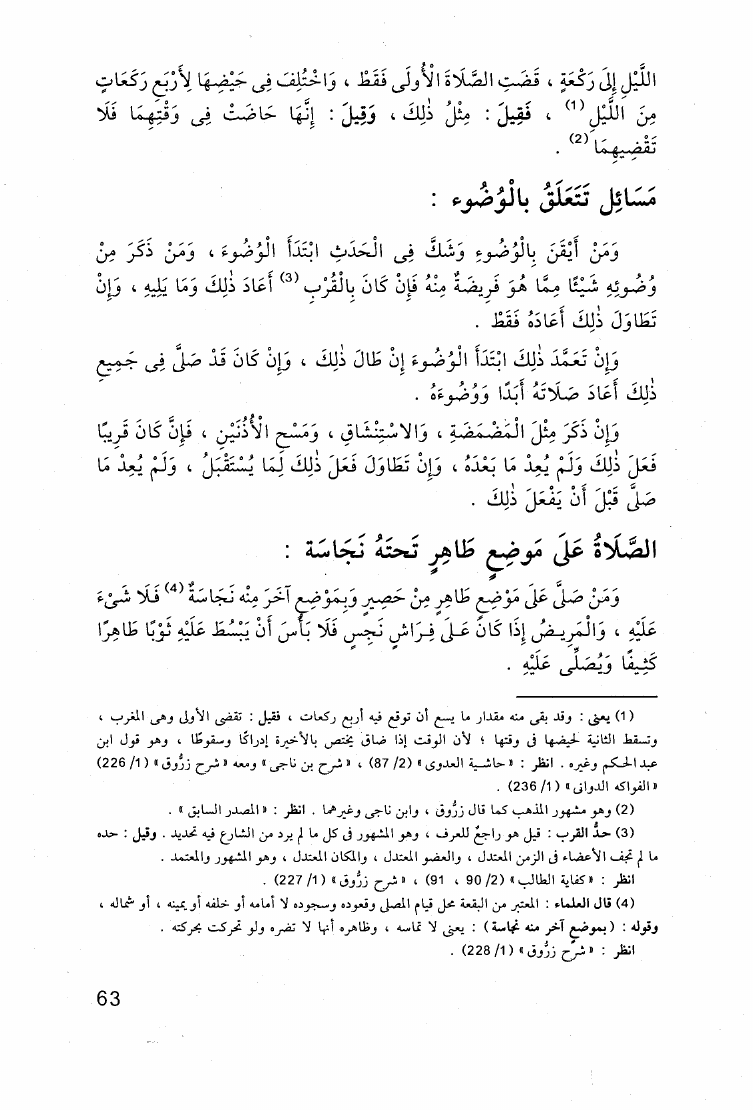 اللَّيْلِ إِلَى رَكْعَةٍ ، قَضَتِ الصَّلَاةَ الْأُولَى فَقَطْ ، وَاخْتُلِفَ فِى حَيْضِهَا لِأَرْبَعِ رَكَعَاتٍ
مِنَ اللَّيْلِ (1) ، فَقِيلَ : مِثْلُ ذٰلِكَ ، وَقِيلَ : إِنَّهَا حَاضَتْ فِى وَقْتِهِمَا فَلَا
تَقْضِيهِمَا (2) .
مَسَائِل تَتَعَلَقُ بالْوُضُوء :
وَمَنْ أَيْقَنَ بِالْوُضُوءِ وَشَكَّ فِى الْحَدَثِ ابْتَدَأَ الْوُضُوءَ ، وَمَنْ ذَكَرَ مِنْ
وُضُوئِهِ شَيْئًا مِمَّا هُوَ فَرِيضَةٌ مِنْهُ فَإِنْ كَانَ بِالْقُرْبِ (3) أَعَادَ ذٰلِكَ وَمَا يَلِيهِ ، وَإِنْ
تَطَاوَلَ ذٰلِكَ أَعَادَهُ فَقَطْ .
وَإِنْ تَعَمَّدَ ذٰلِكَ ابْتَدَأَ الْوُضُوءَ إِنْ طَالَ ذٰلِكَ ، وَإِنْ كَانَ قَدْ صَلَّى فِى جَمِيعِ
ذٰلِكَ أَعَادَ صَلَاتَهُ أَبَدًا وَوُضُوءَهُ .
وَإِنْ ذَكَرَ مِثْلَ الْمَضْمَضَةِ ، وَالاسْتِنْشَاقِ ، وَمَسْحِ الْأُذُنَيْنِ ، فَإِنْ كَانَ قَرِيبًا
فَعَلَ ذٰلِكَ وَلَمْ يُعِدْ مَا بَعْدَهُ ، وَإِنْ تَطَاوَلَ فَعَلَ ذٰلِكَ لِمَا يُسْتَقْبَلُ ، وَلَمْ يُعِدْ مَا
صَلَّى قَبْلَ أَنْ يَفْعَلَ ذٰلِكَ .
الصَّلَاةُ عَلَى مَوضِعٍ طَاهِرٍ تَحتَهُ نَجَاسَة :
وَمَنْ صَلَّى عَلَى مَوْضِعٍ طَاهِرٍ مِنْ حَصِيرٍ وَبِمَوْضِعٍ آخَرَ مِنْهُ نَجَاسَةٌ (4) فَلَا شَىْءَ
عَلَيْهِ ، وَالْمَرِيضُ إِذَا كَانَ عَلَى فِرَاشٍ نَجِسٍ فَلَا بَأْسَ أَنْ يَبْسُطَ عَلَيْهِ ثَوْبًا طَاهِرًا
كَثِيفًا وَيُصَلِّى عَلَيْهِ .
(1) يعنى : وقد بقى منه مقدار ما يسع أن توقع فيه أربع ركعات ، فقيل : تقضى الأولى وهى المغرب ،
وتسقط الثانية لحيضها فى وقتها ؛ لأن الوقت إذا ضاق يختص بالأخيرة إدراكًا وسقوطًا ، وهو قول ابن
عبد الحكم وغيره . انظر : « حاشية العدوى » (2/ 87) ، « شرح بن ناجى » ومعه « شرح زروق » (1/ 226)
« الفواكه الدوانى » (1/ 236) .
(2) وهو مشهور المذهب كما قال زرُّوق ، وابن ناجى وغيرهما . انظر : « المصدر السابق » .
(3) حدُّ القرب : قيل هو راجعٌ للعرف ، وهو المشهور فى كل ما لم يرد من الشارع فيه تحديد . وقيل : حده
ما لم تجف الأعضاء فى الزمن المعتدل ، والعضو المعتدل ، والمكان المعتدل ، وهو المشهور والمعتمد .
انظر : « كفاية الطالب » (2/ 90 ، 91) ، « شرح زرُّوق » (1/ 227) .
(4) قال العلماء : المعتبر من البقعة محل قيام المصلى وقعوده وسجوده لا أمامه أو خلفه أو يمينه ، أو شماله ،
وقوله : ( بموضعٍ آخر منه نجاسة ) : يعنى لا تماسه ، وظاهره أنها لا تضره ولو تحركت بحركته .
انظر : « شرْح زرُّوق » (1/ 228) .
63